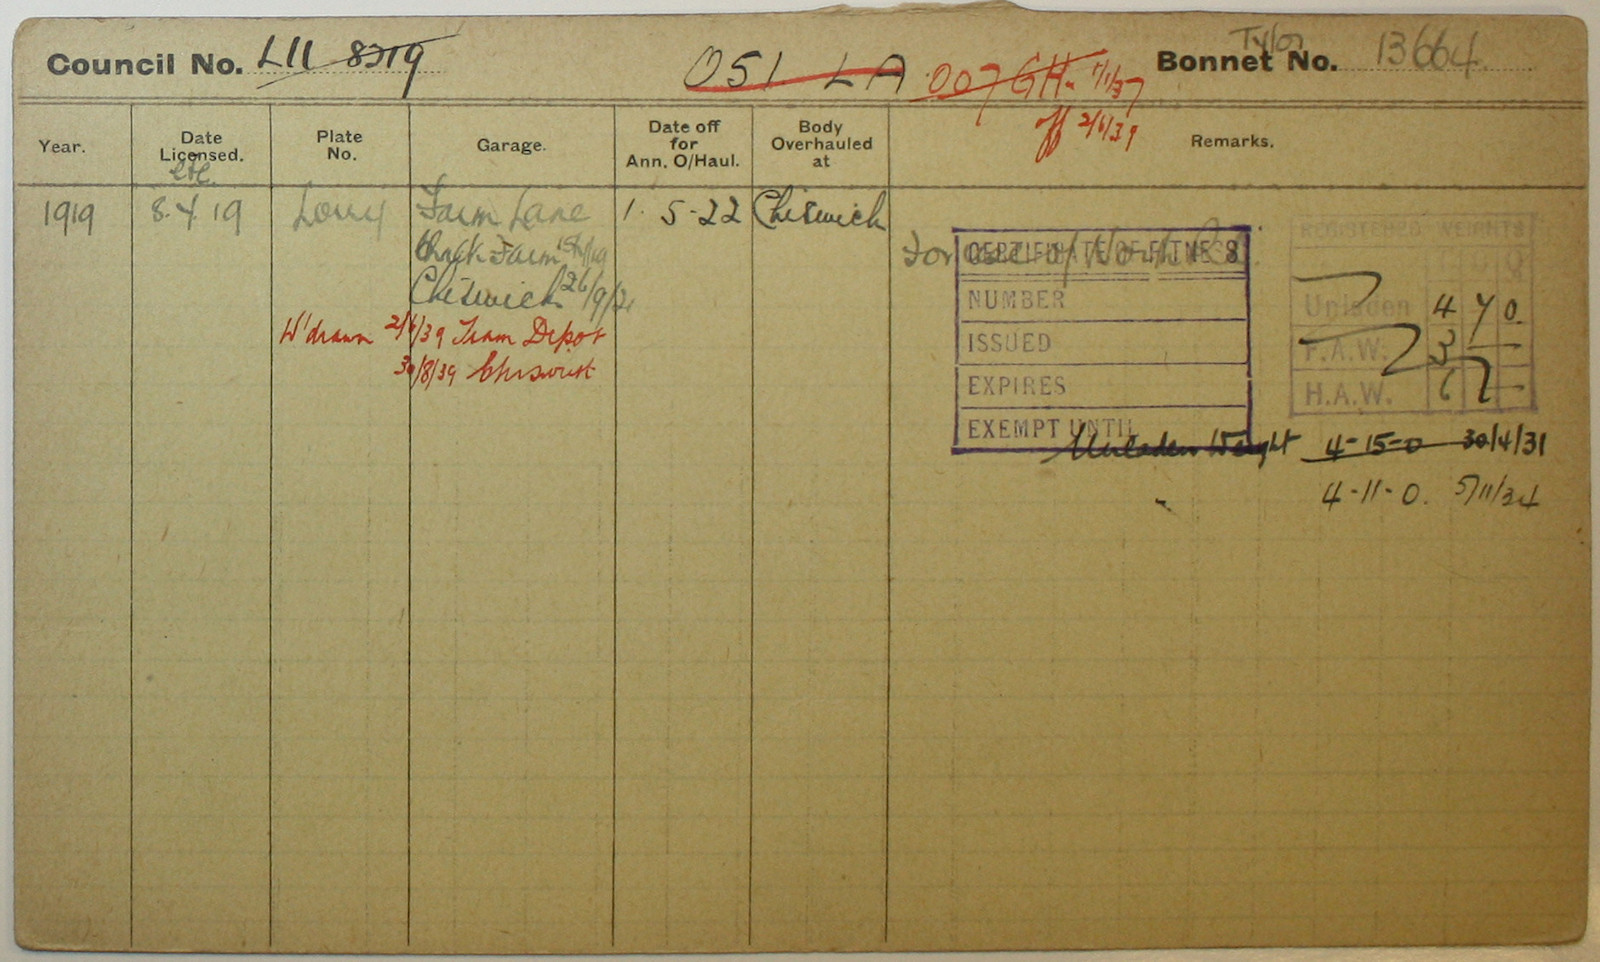 Council No. LU 8219 051 LA 007 GH. 1/1/37 Tylor Bonnet No. 13664.
off 2/6/39
Year. Date Licensed. etc. Plate No. Garage. Date off for Ann. O/Haul. Body Overhauled at Remarks.
1919 8.4.19 Lorry Farm Lane 1.5-22 Chiswick
Chalk Farm
For use of North
Chiswick 26/9/21
W'drawn 2/6/39 Tram Depot
30/8/39 Chiswick
CERTIFICATE OF FITNESS
NUMBER
ISSUED
EXPIRES
EXEMPT UNTIL
REGISTERED WEIGHTS
T C Q
Unladen 4 7 0
F.A.W. 3
H.A.W. 6
Unladen Weight 4-15-0 30/4/31
4-11-0. 5/11/34